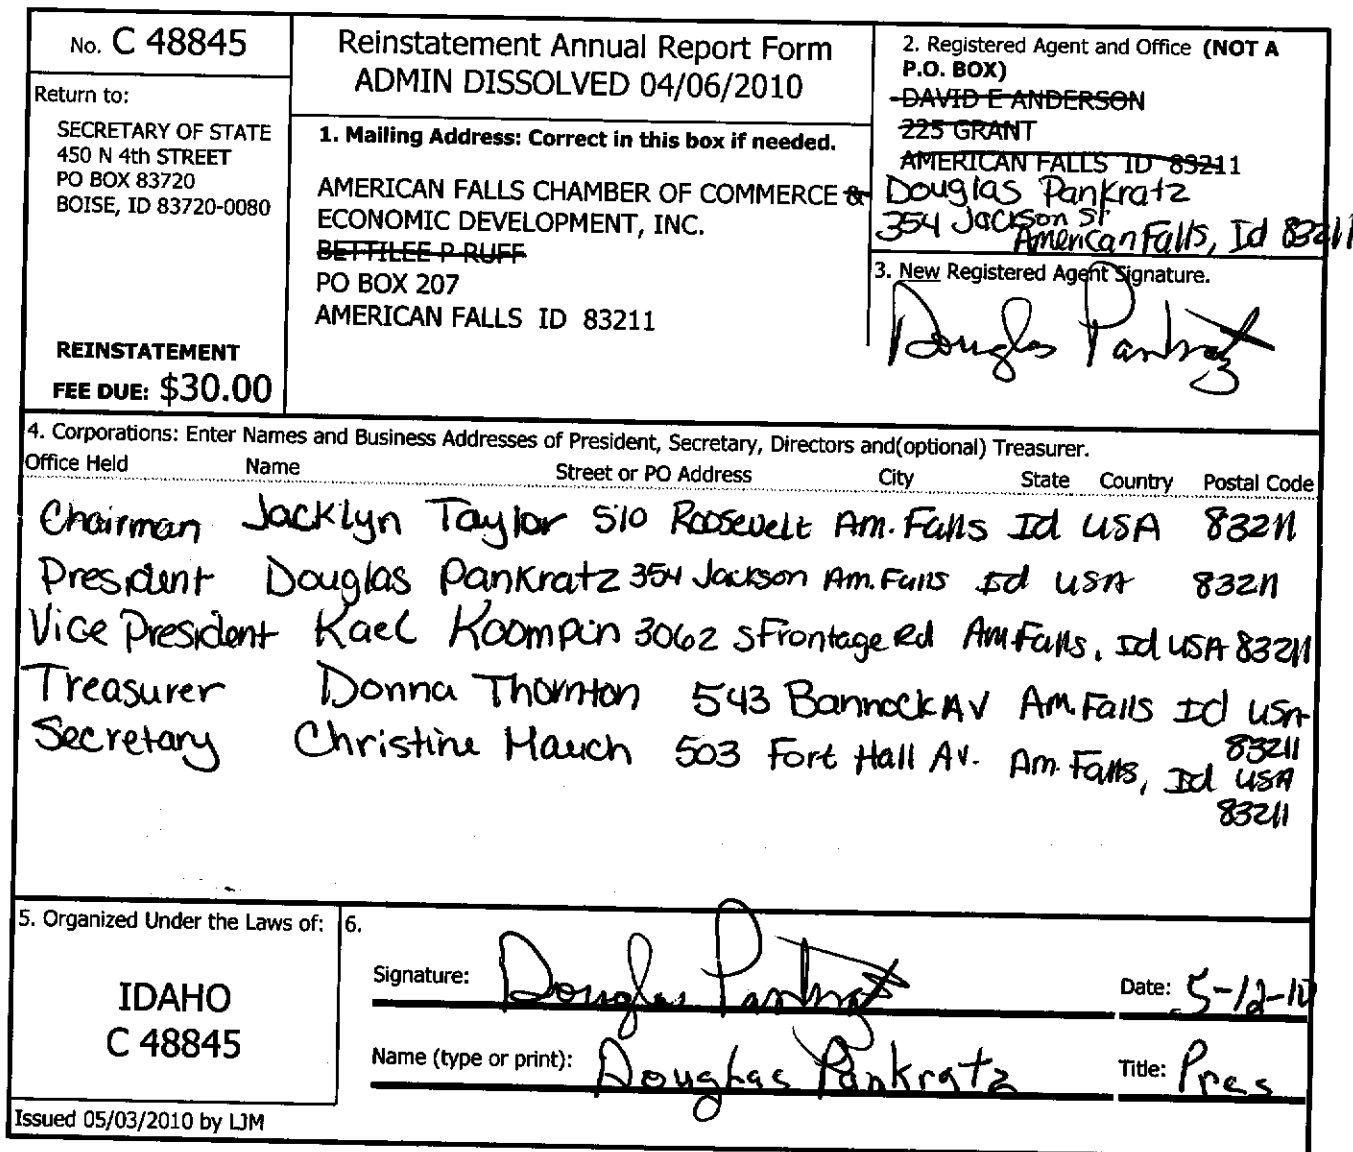 No. C 48845
Return to:
SECRETARY OF STATE
450 N 4th STREET
PO BOX 83720
BOISE, ID 83720-0080
REINSTATEMENT
FEE DUE: $30.00
Reinstatement Annual Report Form
ADMIN DISSOLVED 04/06/2010
1. Mailing Address: Correct in this box if needed.
AMERICAN FALLS CHAMBER OF COMMERCE &
ECONOMIC DEVELOPMENT, INC.
BETTILEE P RUFF
PO BOX 207
AMERICAN FALLS ID 83211
2. Registered Agent and Office (NOT A
P.O. BOX)
DAVID E ANDERSON
225 GRANT
AMERICAN FALLS ID 83211
Douglas Pankratz
354 Jackson St
American Falls, Id 83211
3. New Registered Agent Signature.
Douglas Pankratz
4. Corporations: Enter Names and Business Addresses of President, Secretary, Directors and(optional) Treasurer.
Office Held Name Street or PO Address City State Country Postal Code
Chairman Jacklyn Taylor 510 Roosevelt Am. Falls Id USA 83211
President Douglas Pankratz 354 Jackson Am. Falls Id USA 83211
Vice President Kael Koompin 3062 S Frontage Rd Am Falls, Id USA 83211
Treasurer Donna Thornton 543 Bannock Av Am. Falls Id USA
83211
Secretary Christine Hauch 503 Fort Hall Av. Am. Falls, Id USA
83211
5. Organized Under the Laws of:
IDAHO
C 48845
Issued 05/03/2010 by LJM
6.
Signature: Douglas Pankratz Date: 5-12-10
Name (type or print): Douglas Pankratz Title: Pres